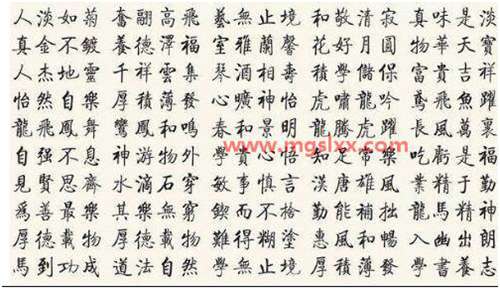 人淡如菊 奮翮高飛 藝無止境 和敬清寂 真味是淡
真金不鍍 養德澤福 室雅蘭馨 花好月圓 物華天寶
人杰地靈 千祥雲集 琴酒相壽 積學儲保 富貴吉祥
怡然自樂 厚積薄發 心曠神怡 虎嘯龍吟 鳶飛魚躍
龍飛鳳舞 鸞鳳和鳴 春和景明 龍騰虎躍 長風萬裏
www.mgslxx.com
自强不息 神游物外 學實心悟 知足常樂 吃虧是福
見賢思齊 水滴石穿 敏事慎言 漢唐雄風 業精于勤
爲善最樂 其樂無窮 鍥而不捨 勤能補拙 龍馬精神
厚德載物 厚德載物 難得糊塗 惠風和暢 入幽出朗
馬到功成 道法自然 學無止境 厚積薄發 學書養志